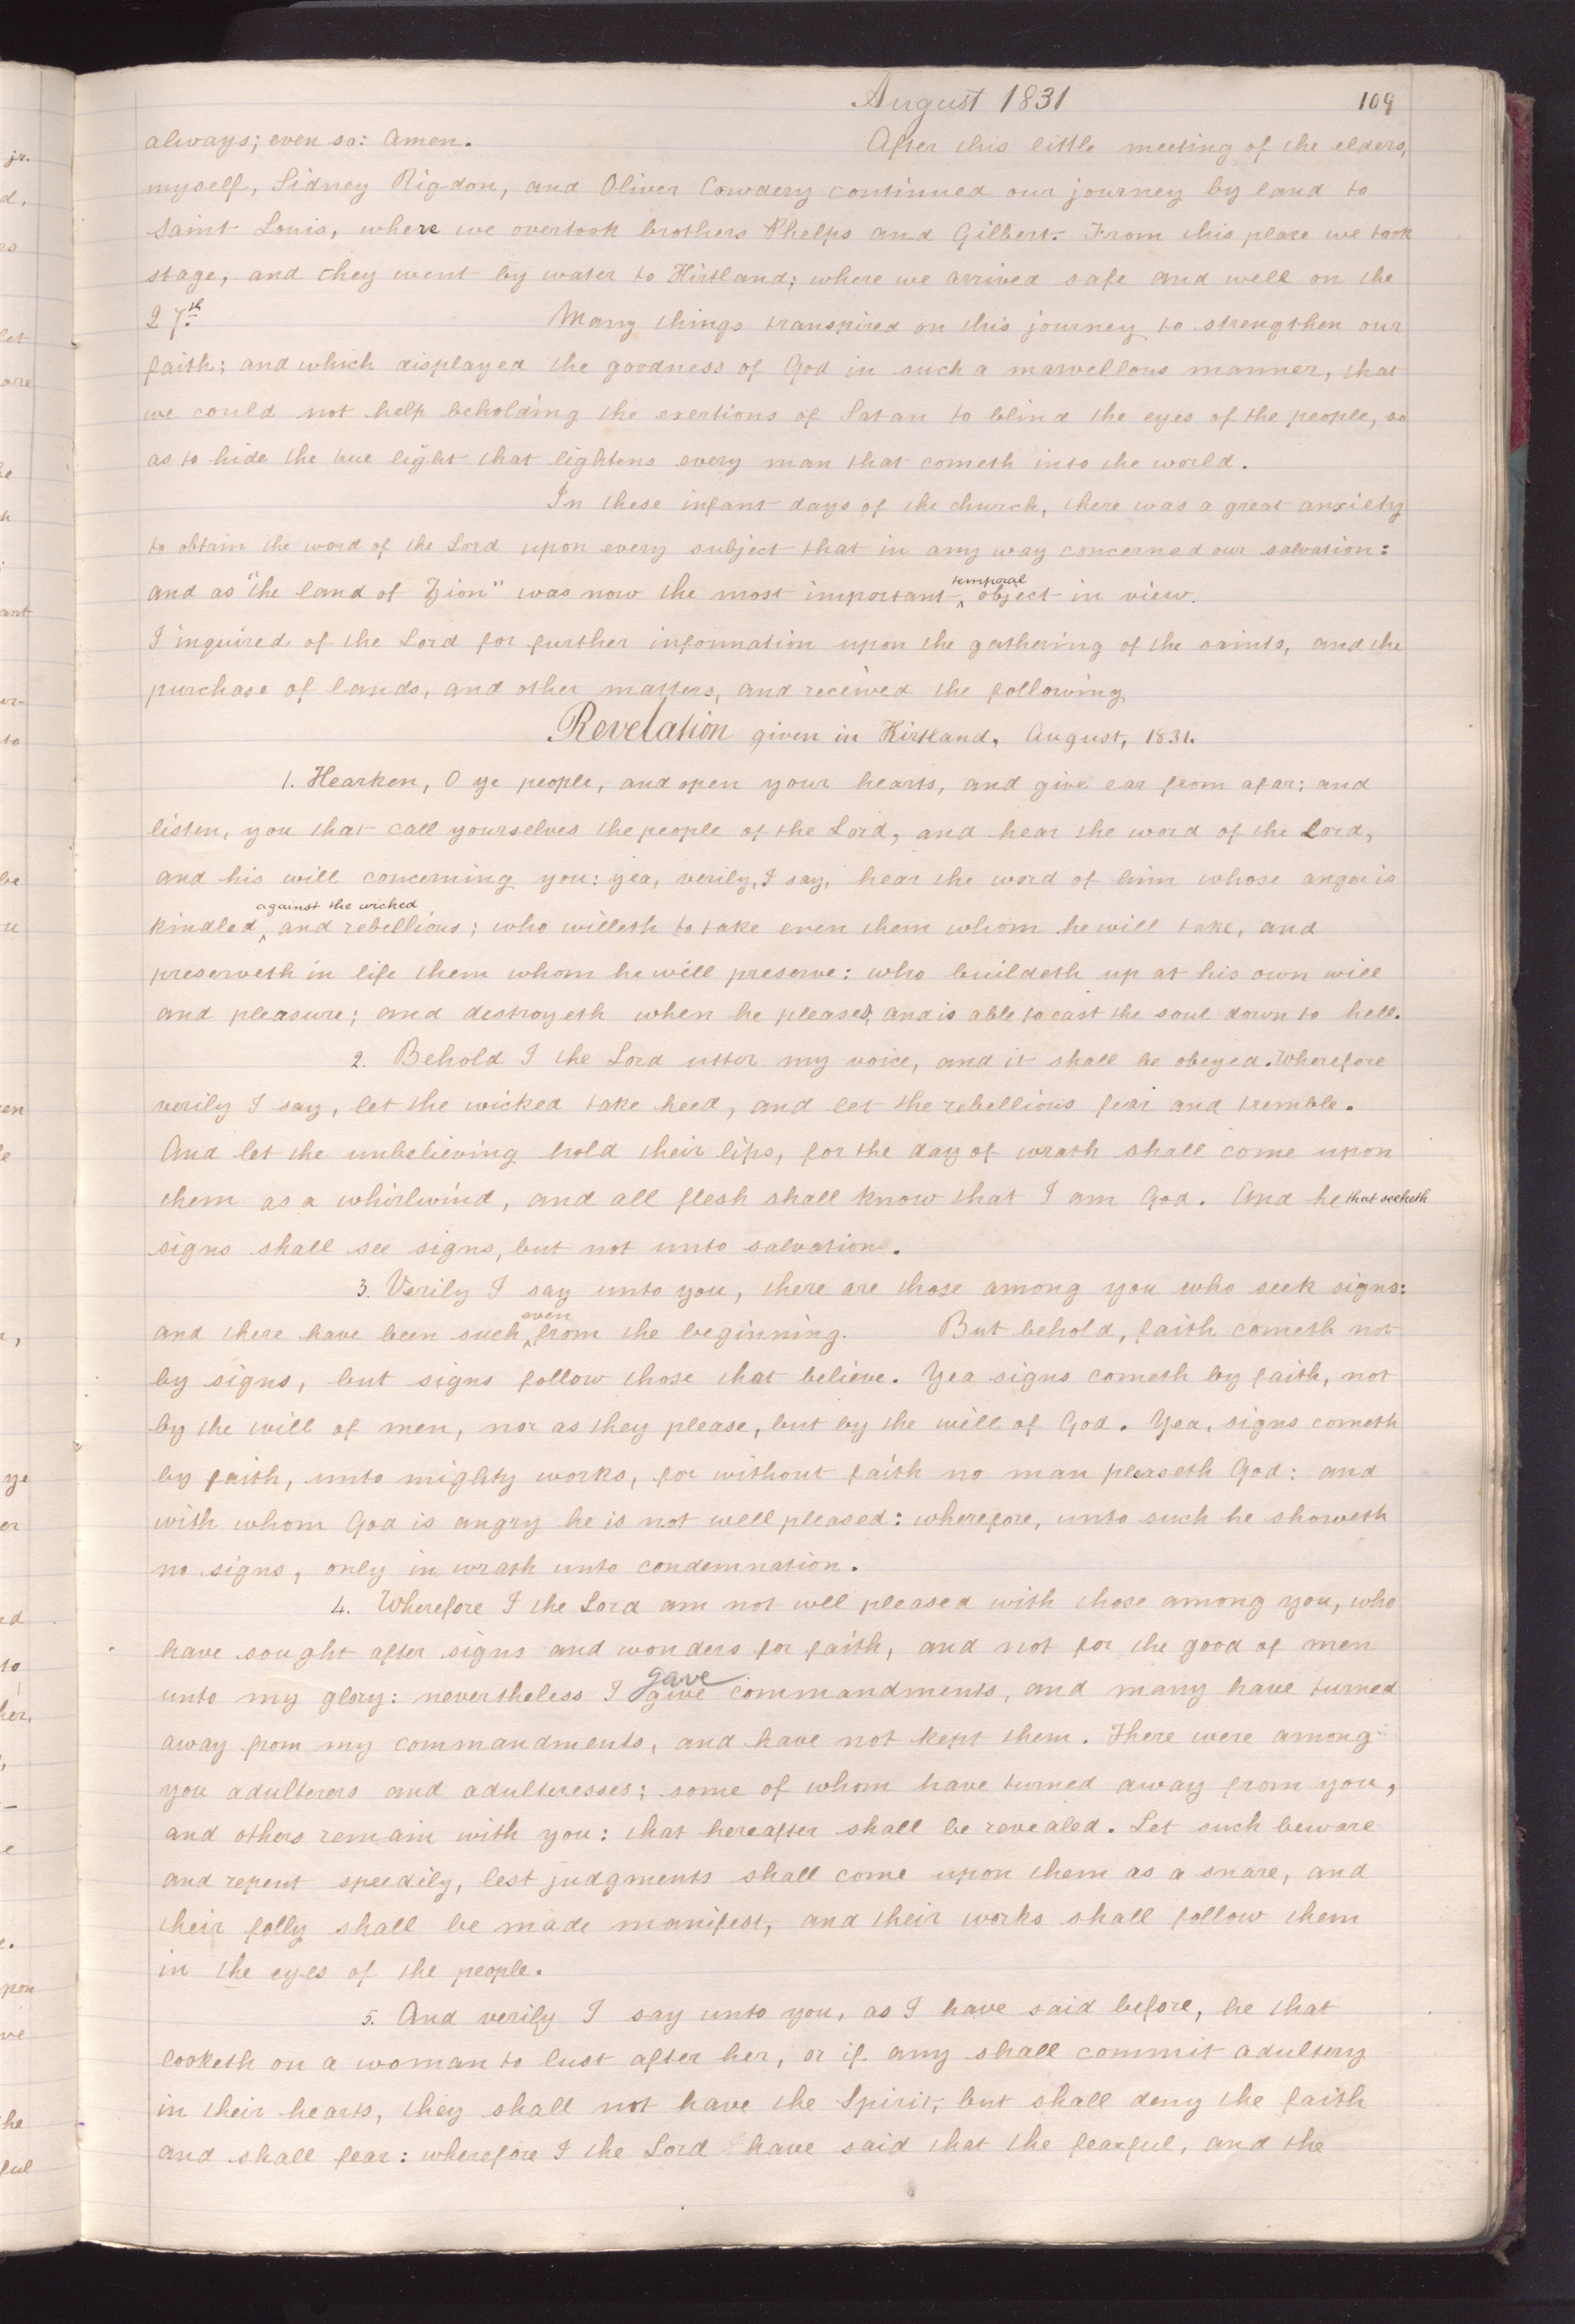 August 1831 109
always; even so: Amen. After this little meeting of the elders,
myself, Sidney Rigdon, and Oliver Cowdery continued our journey by land to
Saint Louis, where we overtook brothers Phelps and Gilbert. From this place we took
stage, and they went by water to Kirtland; where we arrived safe and well on the
27th. Many things transpired on this journey to strengthen our
faith; and which displayed the goodness of God in such a marvellous manner, that
we could not help beholding the exertions of Satan to blind the eyes of the people, so
as to hide the true light that lightens every man that cometh into the world.
In these infant days of the church, there was a great anxiety
to obtain the word of the Lord upon every subject that in any way concerned our salvation:
and as "the land of Zion" was now the most important ^temporal object in view.
I inquired of the Lord for further information upon the gathering of the saints, and the
purchase of lands, and other matters, and received the following
Revelation given in Kirtland, August, 1831.
1. Hearken, O ye people, and open your hearts, and give ear from afar; and
listen, you that call yourselves the people of the Lord, and hear the word of the Lord,
and his will concerning you: yea, verily, I say, hear the word of him whose anger is
kindled ^against the wicked and rebellious; who willeth to take even them whom he will take, and
preserveth in life them whom he will preserve: who buildeth up at his own will
and pleasure; and destroyeth when he pleases, and is able to cast the soul down to hell.
2. Behold I the Lord utter my voice, and it shall be obeyed. Wherefore
verily I say, let the wicked take heed, and let the rebellious fear and tremble.
And let the unbelieving hold their lips, for the day of wrath shall come upon
them as a whirlwind, and all flesh shall know that I am God. And he that seeketh
signs shall see signs, but not unto salvation.
3. Verily I say unto you, there are those among you who seek signs:
and there have been such ^even from the beginning. But behold, faith cometh not
by signs, but signs follow those that believe. Yea signs cometh by faith, not
by the will of men, nor as they please, but by the will of God. Yea, signs cometh
by faith, unto mighty works, for without faith no man pleaseth God: and
with whom God is angry he is not well pleased: wherefore, unto such he showeth
no signs, only in wrath unto condemnation.
4. Wherefore I the Lord am not well pleased with those among you, who
have sought after signs and wonders for faith, and not for the good of men
unto my glory: nevertheless I give gave commandments, and many have turned
away from my commandments, and have not kept them. There were among
you adulterers and adulteresses; some of whom have turned away from you,
and others remain with you: that hereafter shall be revealed. Let such beware
and repent speedily, lest judgments shall come upon them as a snare, and
their folly shall be made manifest, and their works shall follow them
in the eyes of the people.
5. And verily I say unto you, as I have said before, he that
looketh on a woman to lust after her, or if any shall commit adultery
in their hearts, they shall not have the Spirit, but shall deny the faith
and shall fear: wherefore I the Lord have said that the fearful, and the